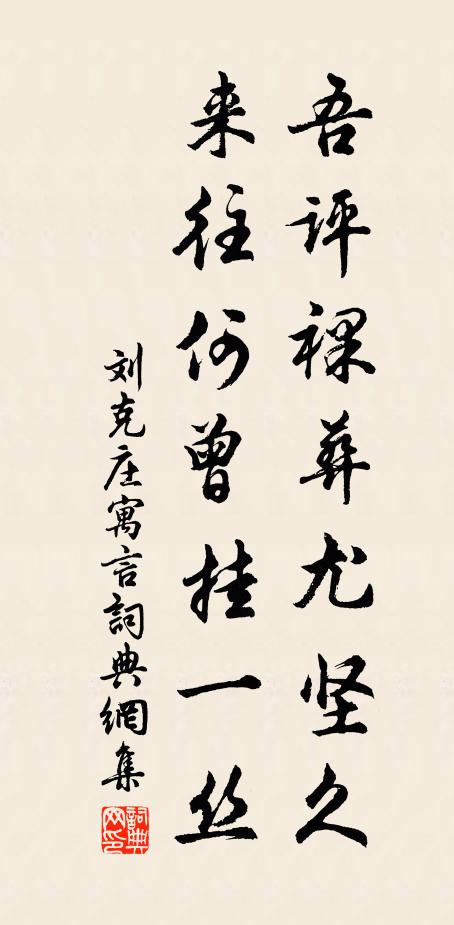 吾评裸葬尤坚久
来往何曾挂一丝
刘克庄寓言詞典網集
詞典网印